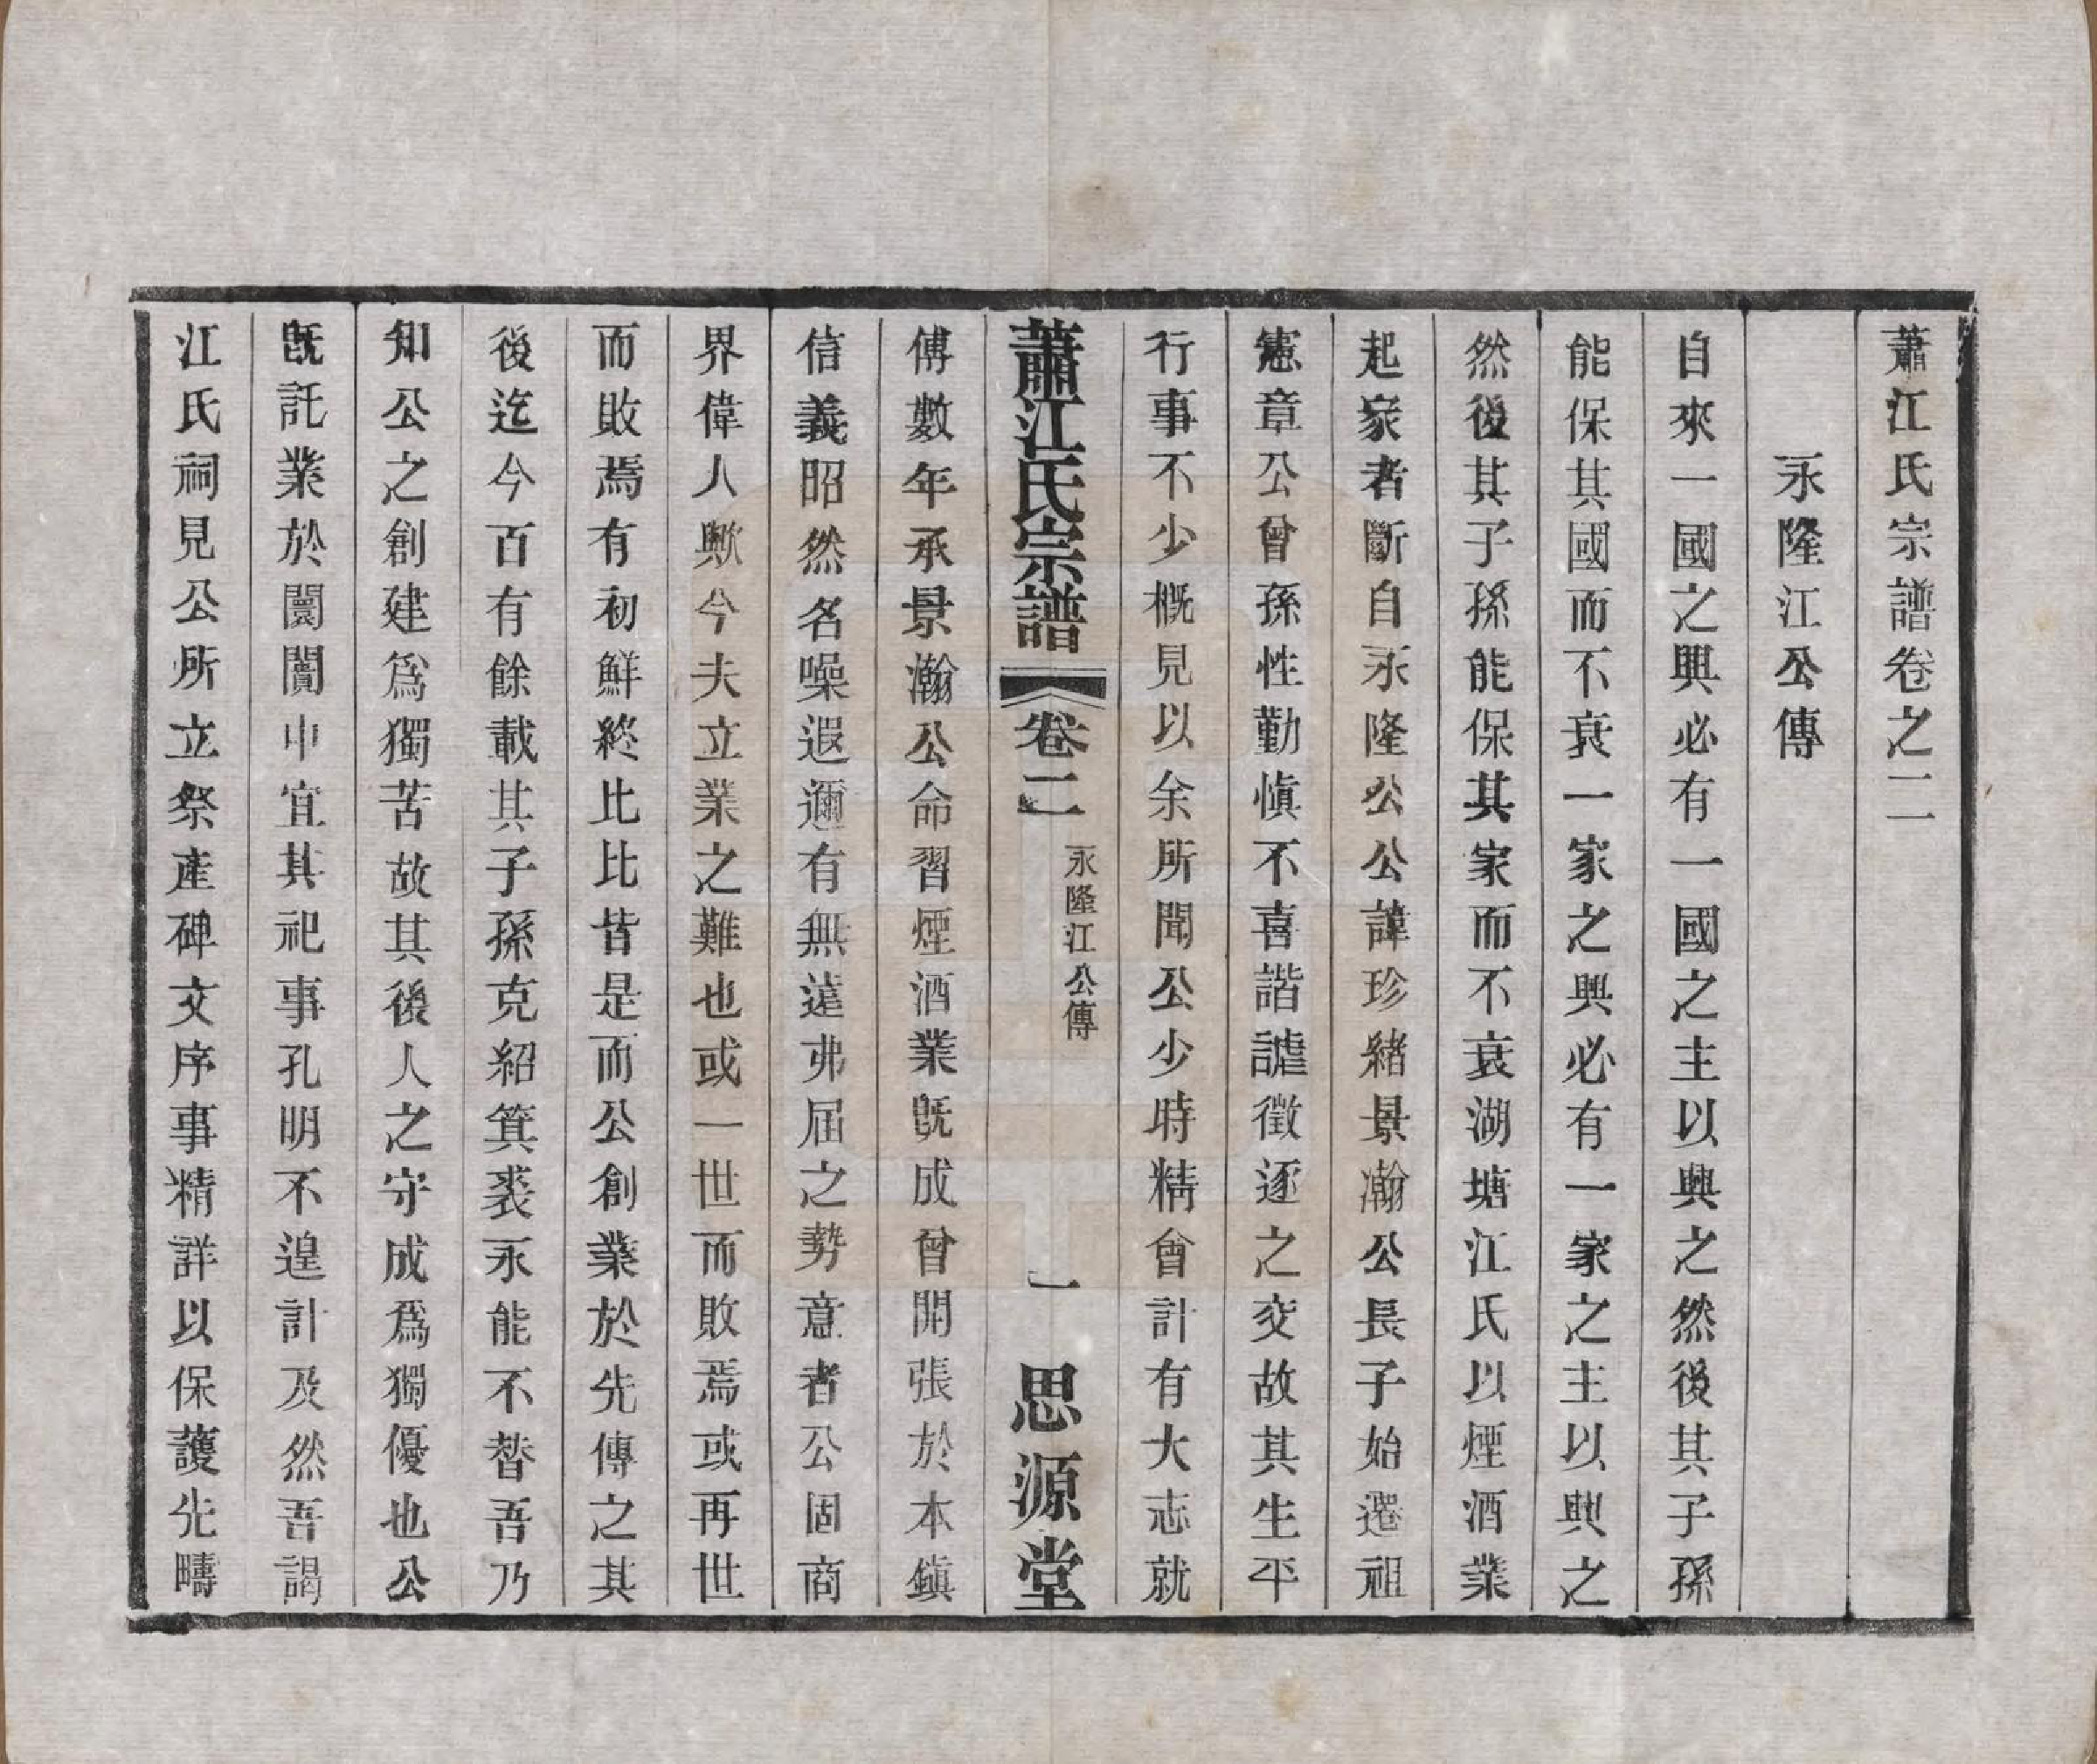 蕭江氏宗譜卷之二
永隆江公傳
自來一國之興必有一國之主以興之然後其子孫
能保其國而不衰一家之興必有一家之主以興之
然後其子孫能保其家而不衰湖塘江氏以煙酒業
起家者斷自永隆公公諱珍緒景瀚公長子始遷祖
憲章公曾孫性勤慎不喜諧謔徵逐之交故其生平
行事不少概見以余所聞公少時精會計有大志就
蕭江氏宗譜 卷二 永隆江公傳 一 思源堂
傅數年承景瀚公命習煙酒業旣成曾開張於本鎭
信義昭然名噪遐邇有無遠弗届之勢意者公固商
界偉人歟今夫立業之難也或一世而敗焉或再世
而敗焉有初鮮終比比皆是而公創業於先傳之其
後迄今百有餘載其子孫克紹箕裘永能不替吾乃
知公之創建爲獨苦故其後人之守成爲獨優也公
旣託業於闤闠中宜其祀事孔明不遑計及然吾謁
江氏祠見公所立祭產碑文序事精詳以保護先疇